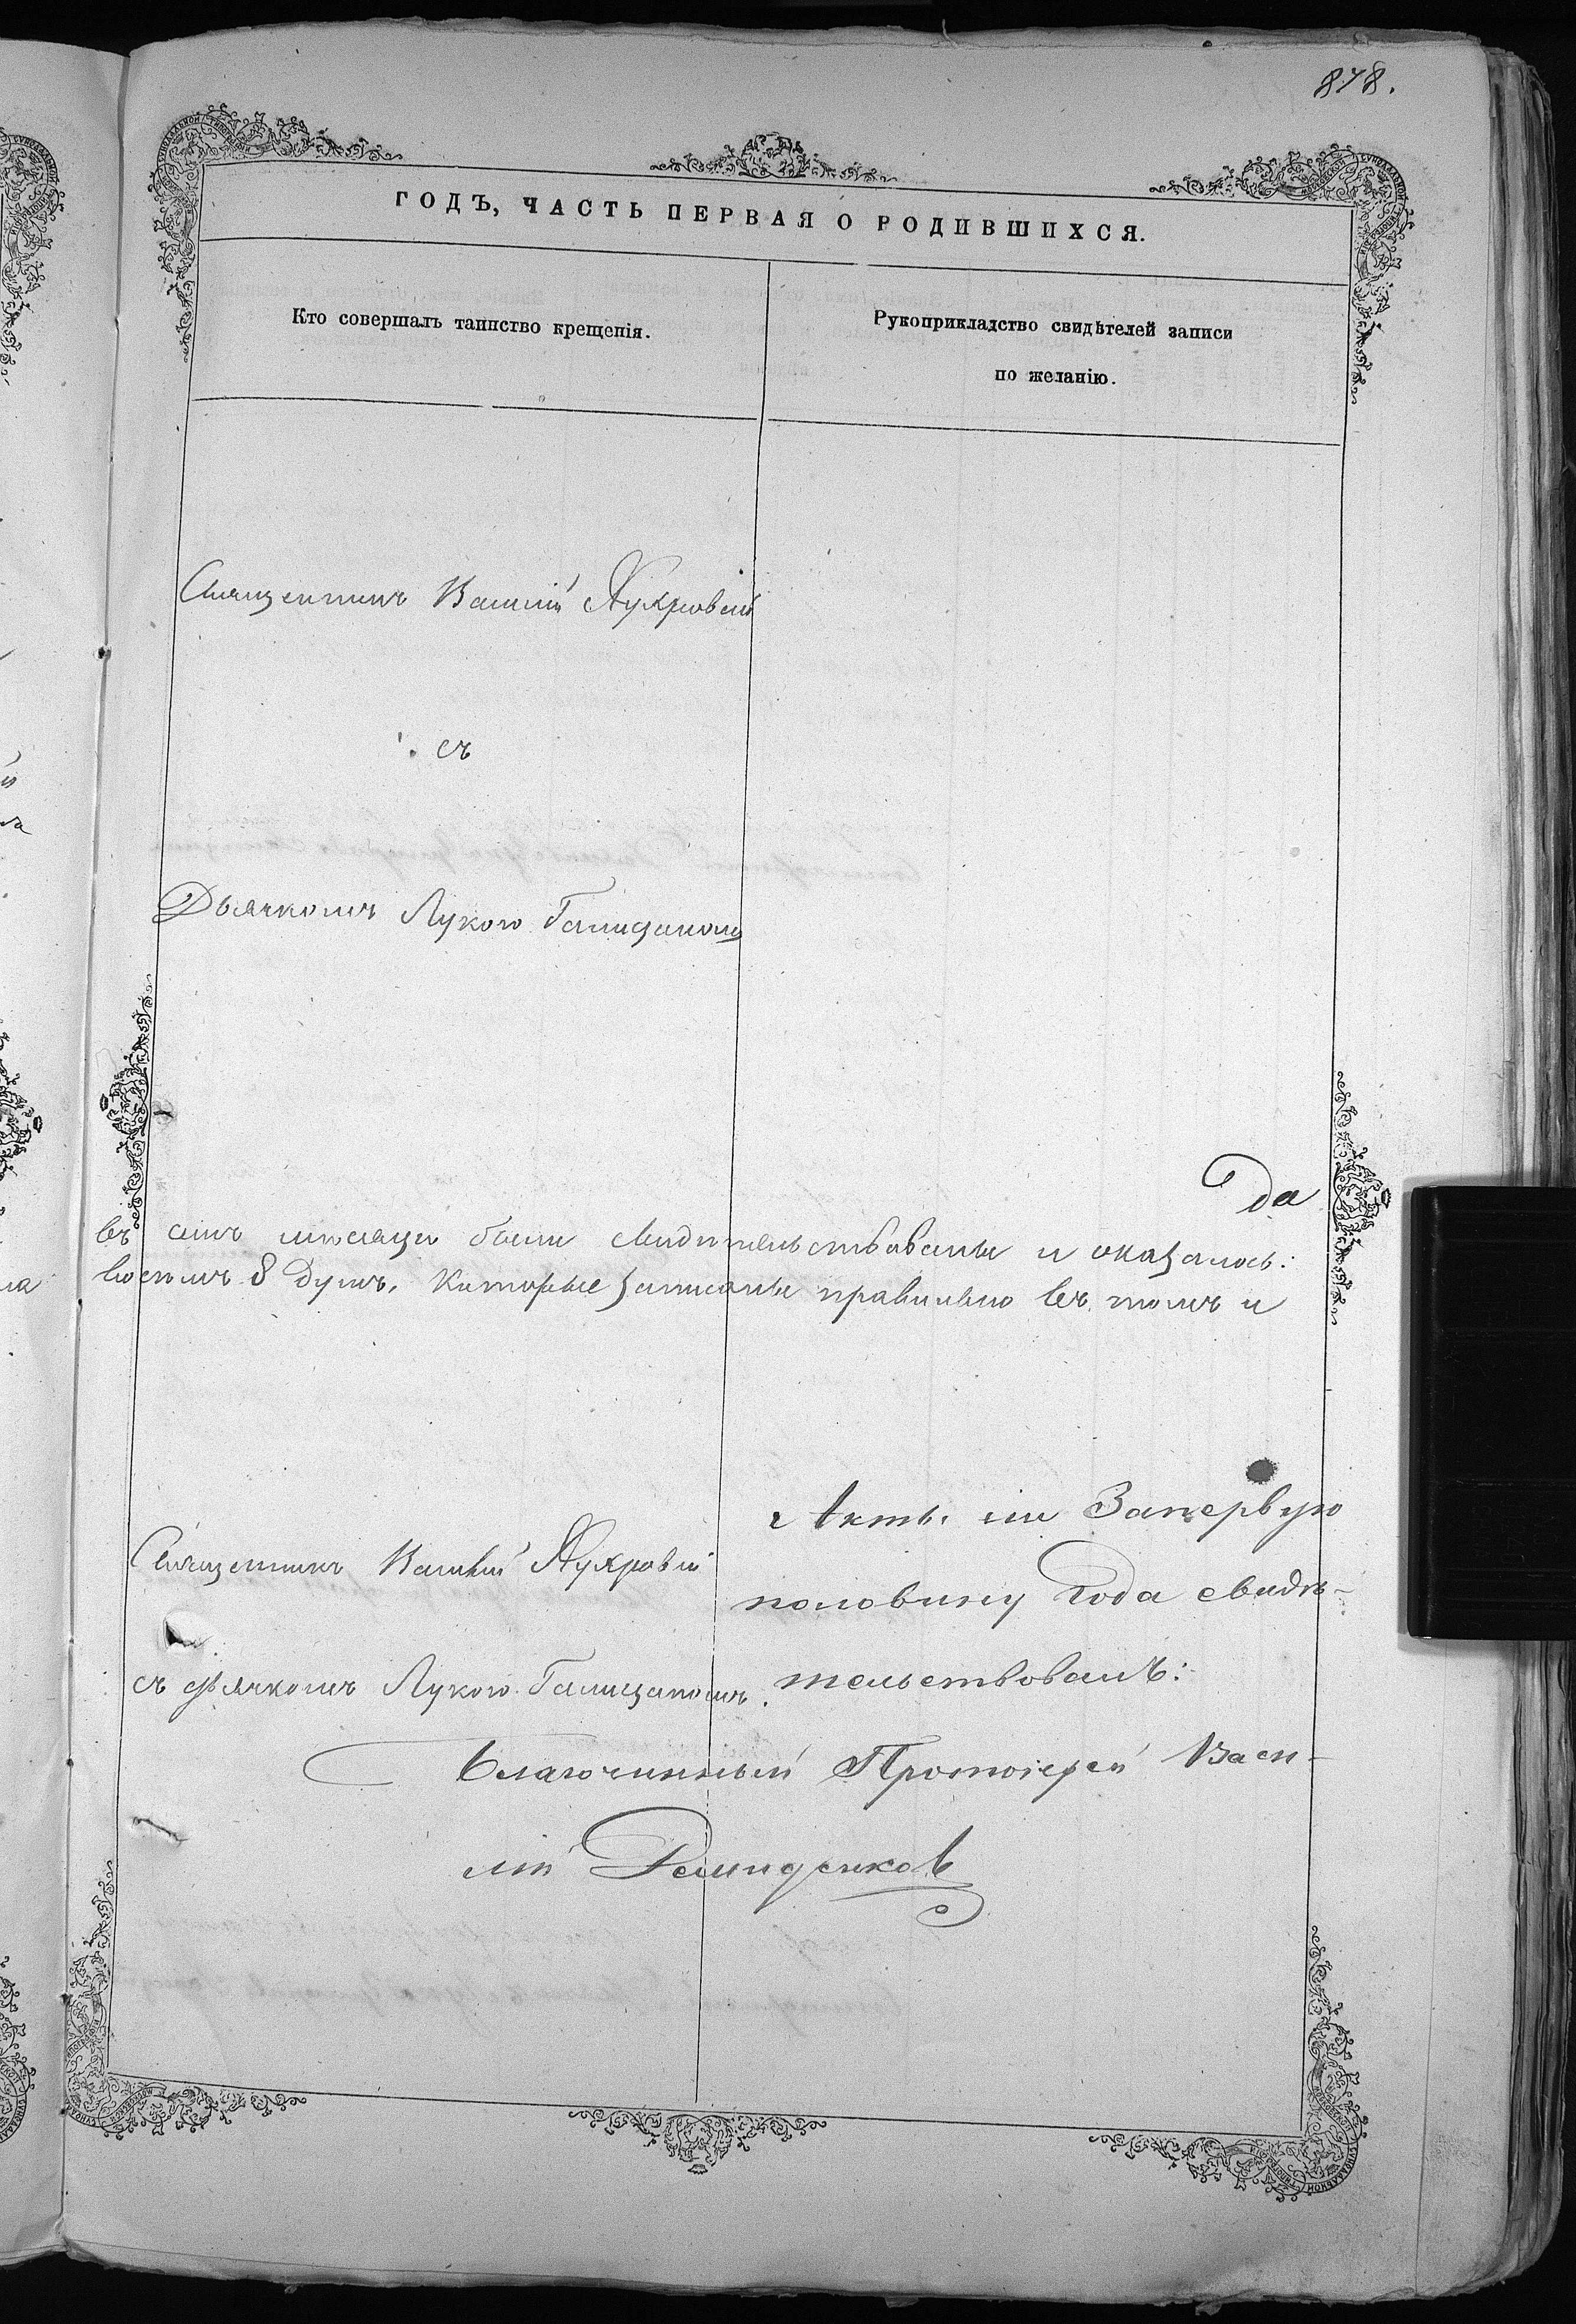 878.
ГОДЪ, ЧАСТЬ ПЕРВАЯ О РОДИВШИХСЯ.
Кто совершалъ таинство крещенія.
Рукоприкладство свидѣтелей записи
по желанію.
Священникъ Василій
съ
Дьячкомъ Лукою
Да
въ семъ мѣсяцѣ были свидѣтельствованы и оказалось:
восемь 8 душъ, которые записаны правильно въ томъ и
Священникъ Василій
съ дьячкомъ Лукою
Акты сіи За первую
половину года свидѣ-
тельствовалъ:
Благочинный Протоіерей Васи-
лій